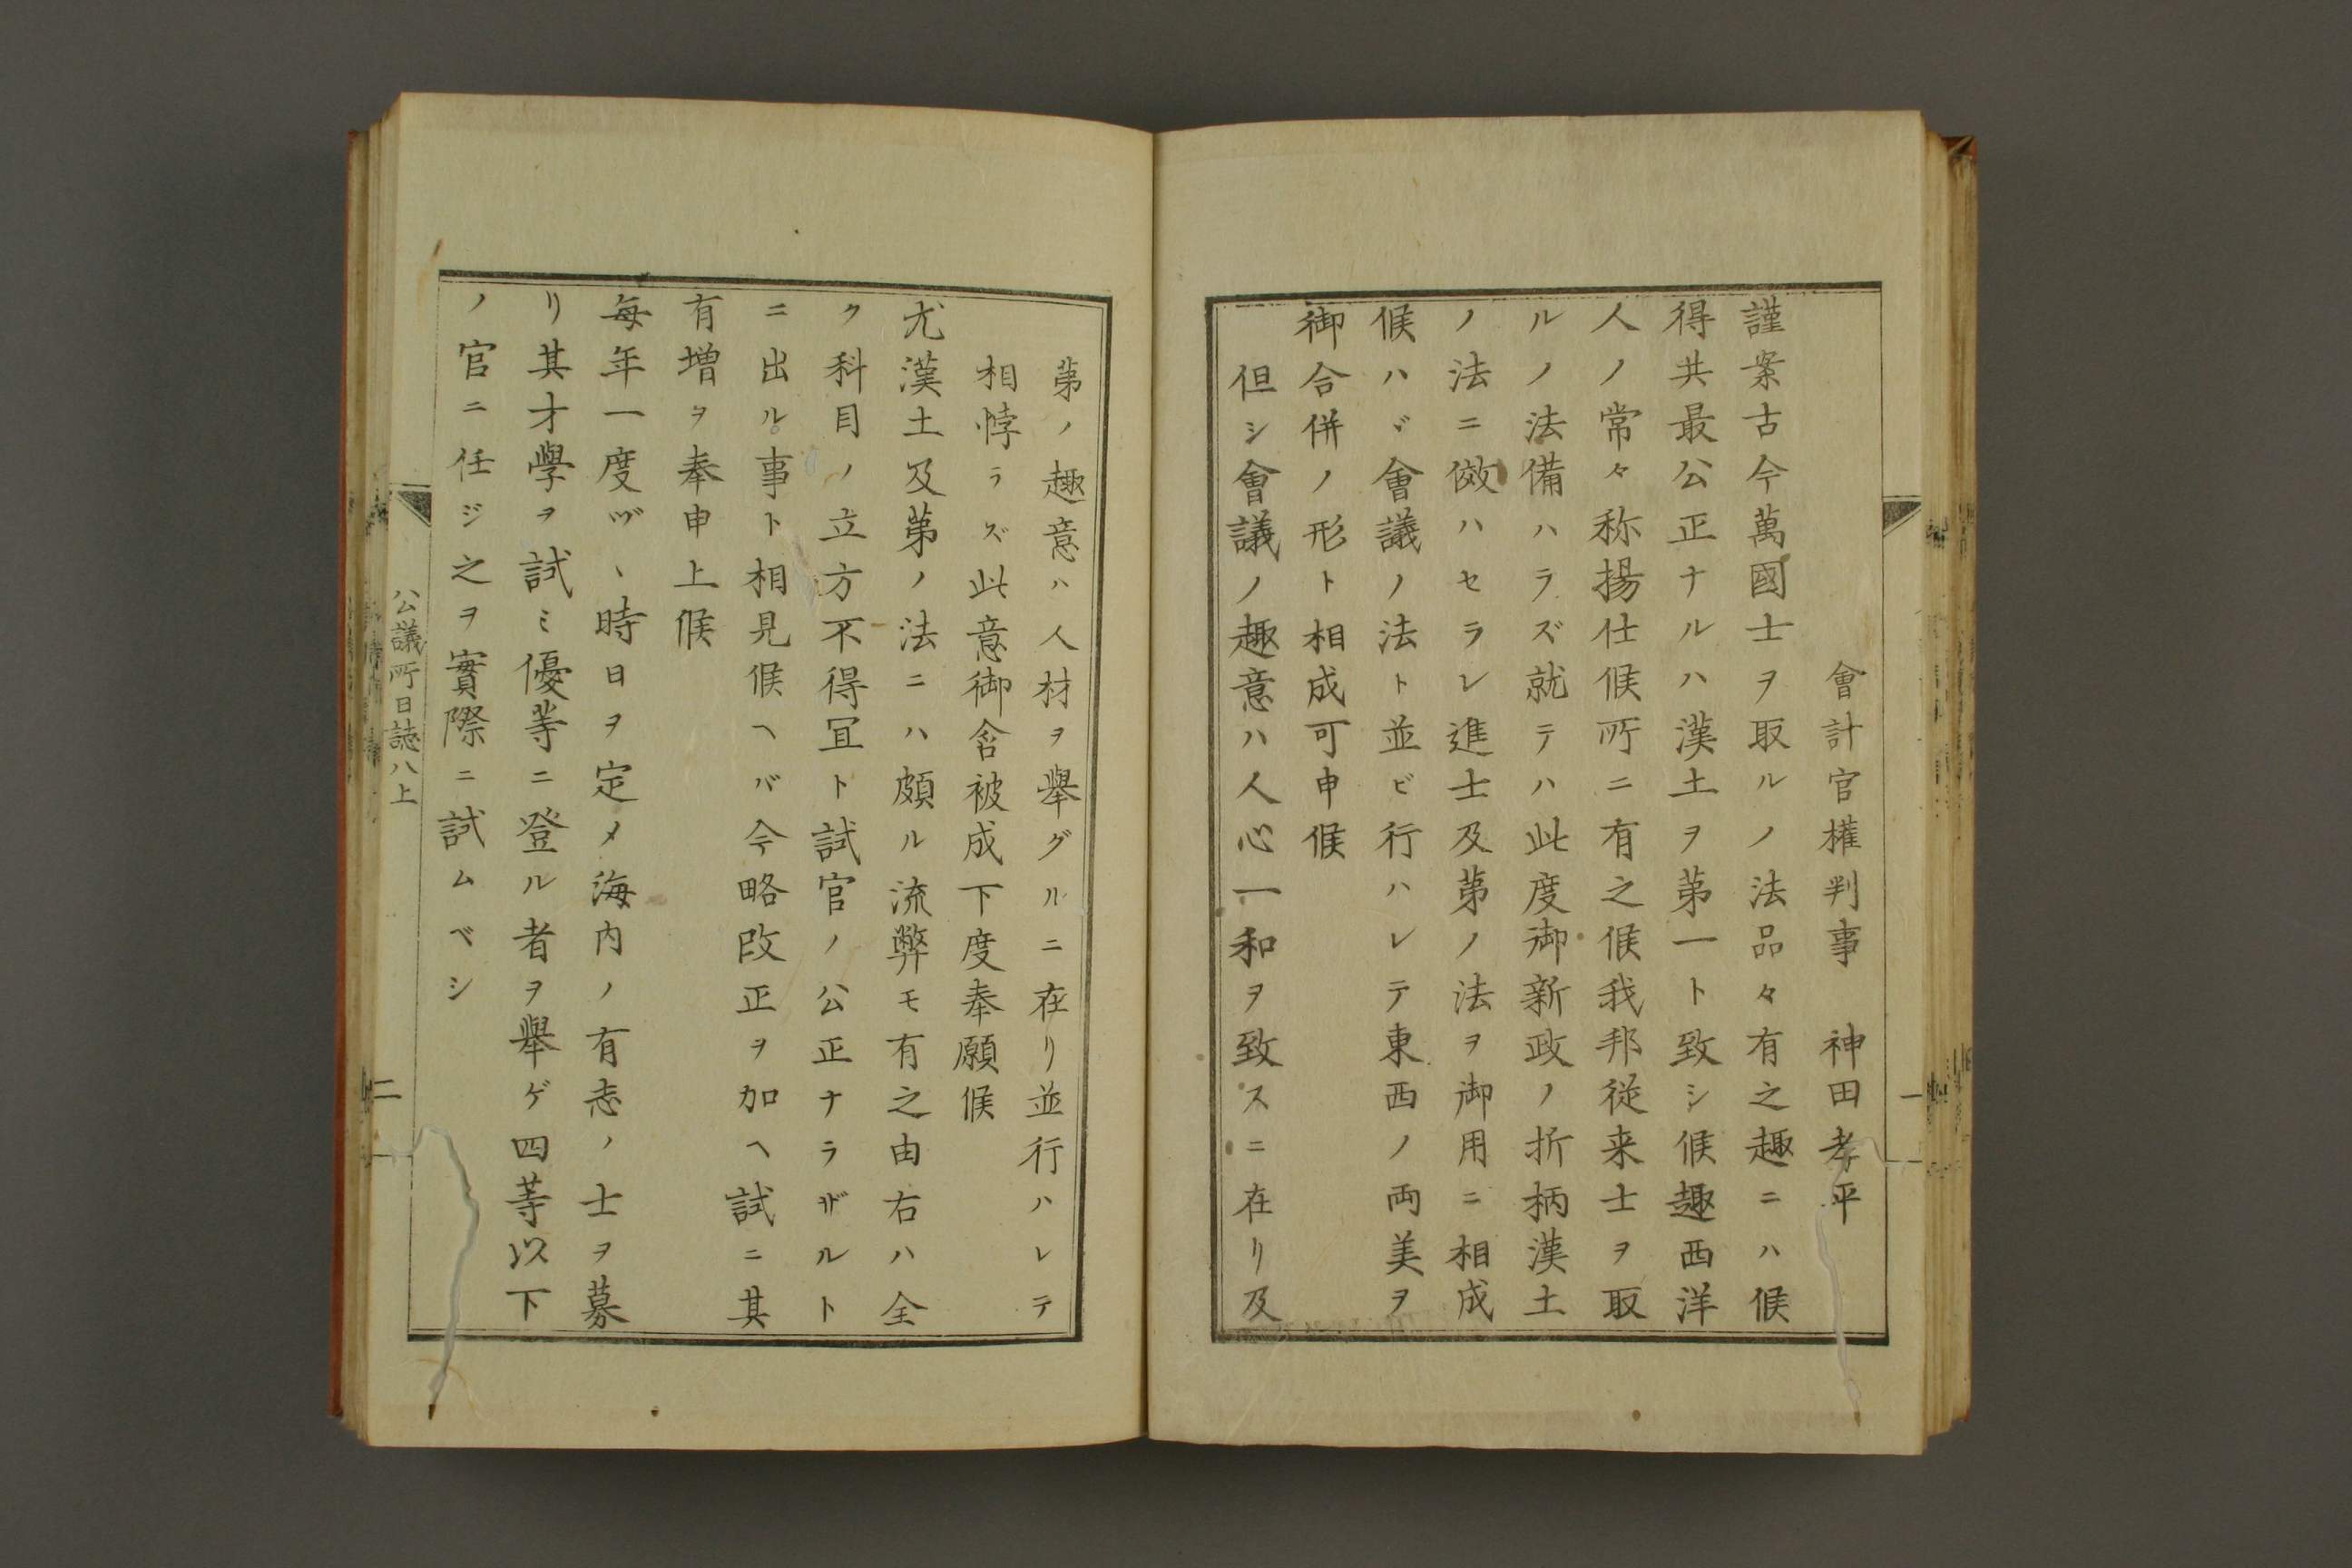 會計官權判事　神田孝平
謹案古今萬國士ヲ取ルノ法品々有之趣ニハ候
得共最公正ナルハ漢土ヲ第一ト致シ候趣西洋
人ノ常々称揚仕候所ニ有之候我邦従来士ヲ取
ルノ法備ハラズ就テハ此度御新政ノ折柄漢土
ノ法ニ倣ハセラレ進士及第ノ法ヲ御用ニ相成
候ハヾ會議ノ法ト並ビ行ハレテ東西ノ両美ヲ
御合併ノ形ト相成可申候
但シ會議ノ趣意ハ人心一和ヲ致スニ在リ及
第ノ趣意ハ人材ヲ舉グルニ在リ並行ハレテ
相悖ラズ此意御含被成下度奉願候
尤漢土及第ノ法ニハ頗ル流弊モ有之由右ハ全
ク科目ノ立方不得冝ト試官ノ公正ナラザルト
ニ出ル事ト相見候ヘバ今略改正ヲ加ヘ試ニ其
有增ヲ奉申上候
每年一度ヅヽ時日ヲ定メ海内ノ有志ノ士ヲ募
リ其才學ヲ試ミ優等ニ登ル者ヲ舉ゲ四等以下
ノ官ニ任ジ之ヲ實際ニ試ムベシ
公議所日誌八上
二
一